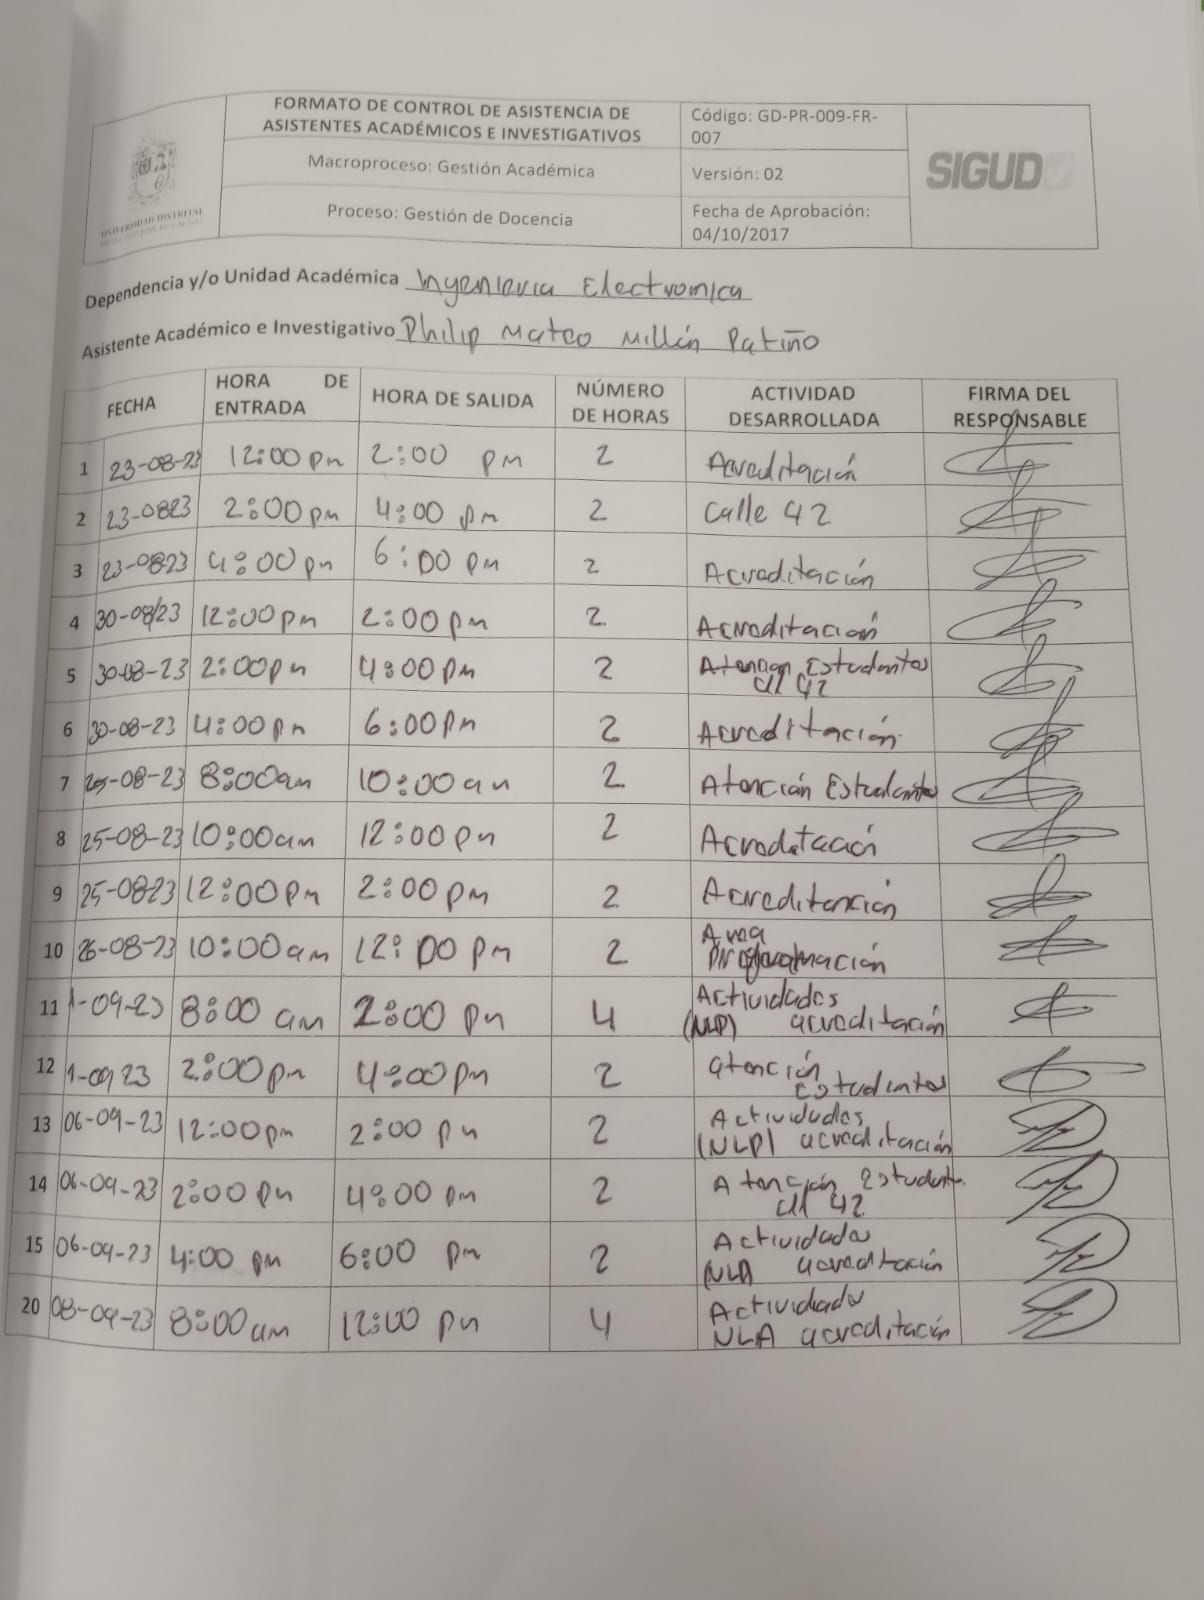 FORMATO DE CONTROL DE ASISTENCIA DE
ASISTENTES ACADÉMICOS E INVESTIGATIVOS
Macroproceso: Gestión Académica
Proceso: Gestión de Docencia
Código: GD-PR-009-FR-
007
Versión: 02
Fecha de Aprobación:
04/10/2017
SIGUD
UNIVERSIDAD DISTRITAL
Dependencia y/o Unidad Académica Ingenieria Electronica
Asistente Académico e Investigativo Philip Mateo Millán Patiño
FECHA HORA DE ENTRADA HORA DE SALIDA NÚMERO DE HORAS ACTIVIDAD DESARROLLADA FIRMA DEL RESPONSABLE
1 23-08-23 12:00 pm 2:00 pm 2 Acreditación
2 23-0823 2:00 pm 4:00 pm 2 Calle 42
3 23-0823 4:00 pm 6:00 pm 2 Acreditación
4 30-08/23 12:00 pm 2:00 pm 2 Acreditación
5 30-08-23 2:00 pm 4:00 pm 2 Atencion Estudiantes
cll 42
6 30-08-23 4:00 pm 6:00 pm 2 Acreditación
7 25-08-23 8:00 am 10:00 am 2 Atención Estudiantes
8 25-08-23 10:00 am 12:00 pm 2 Acreditación
9 25-0823 12:00 pm 2:00 pm 2 Acreditanción
10 26-08-23 10:00 am 12:00 pm 2
programación
11 1-09-23 8:00 am 2:00 pm 4 Actividades
(NLP) acreditación
12 1-0923 2:00 pm 4:00 pm 2 atención
Estudiantes
13 06-09-23 12:00 pm 2:00 pm 2 Actividades
(NLP) acreditación
14 06-09-23 2:00 pm 4:00 pm 2 Atención Estudiante
cll 42
15 06-09-23 4:00 pm 6:00 pm 2 Actividades
acreditación
20 08-09-23 8:00 am 12:00 pm 4 Actividades
NLA acreditación